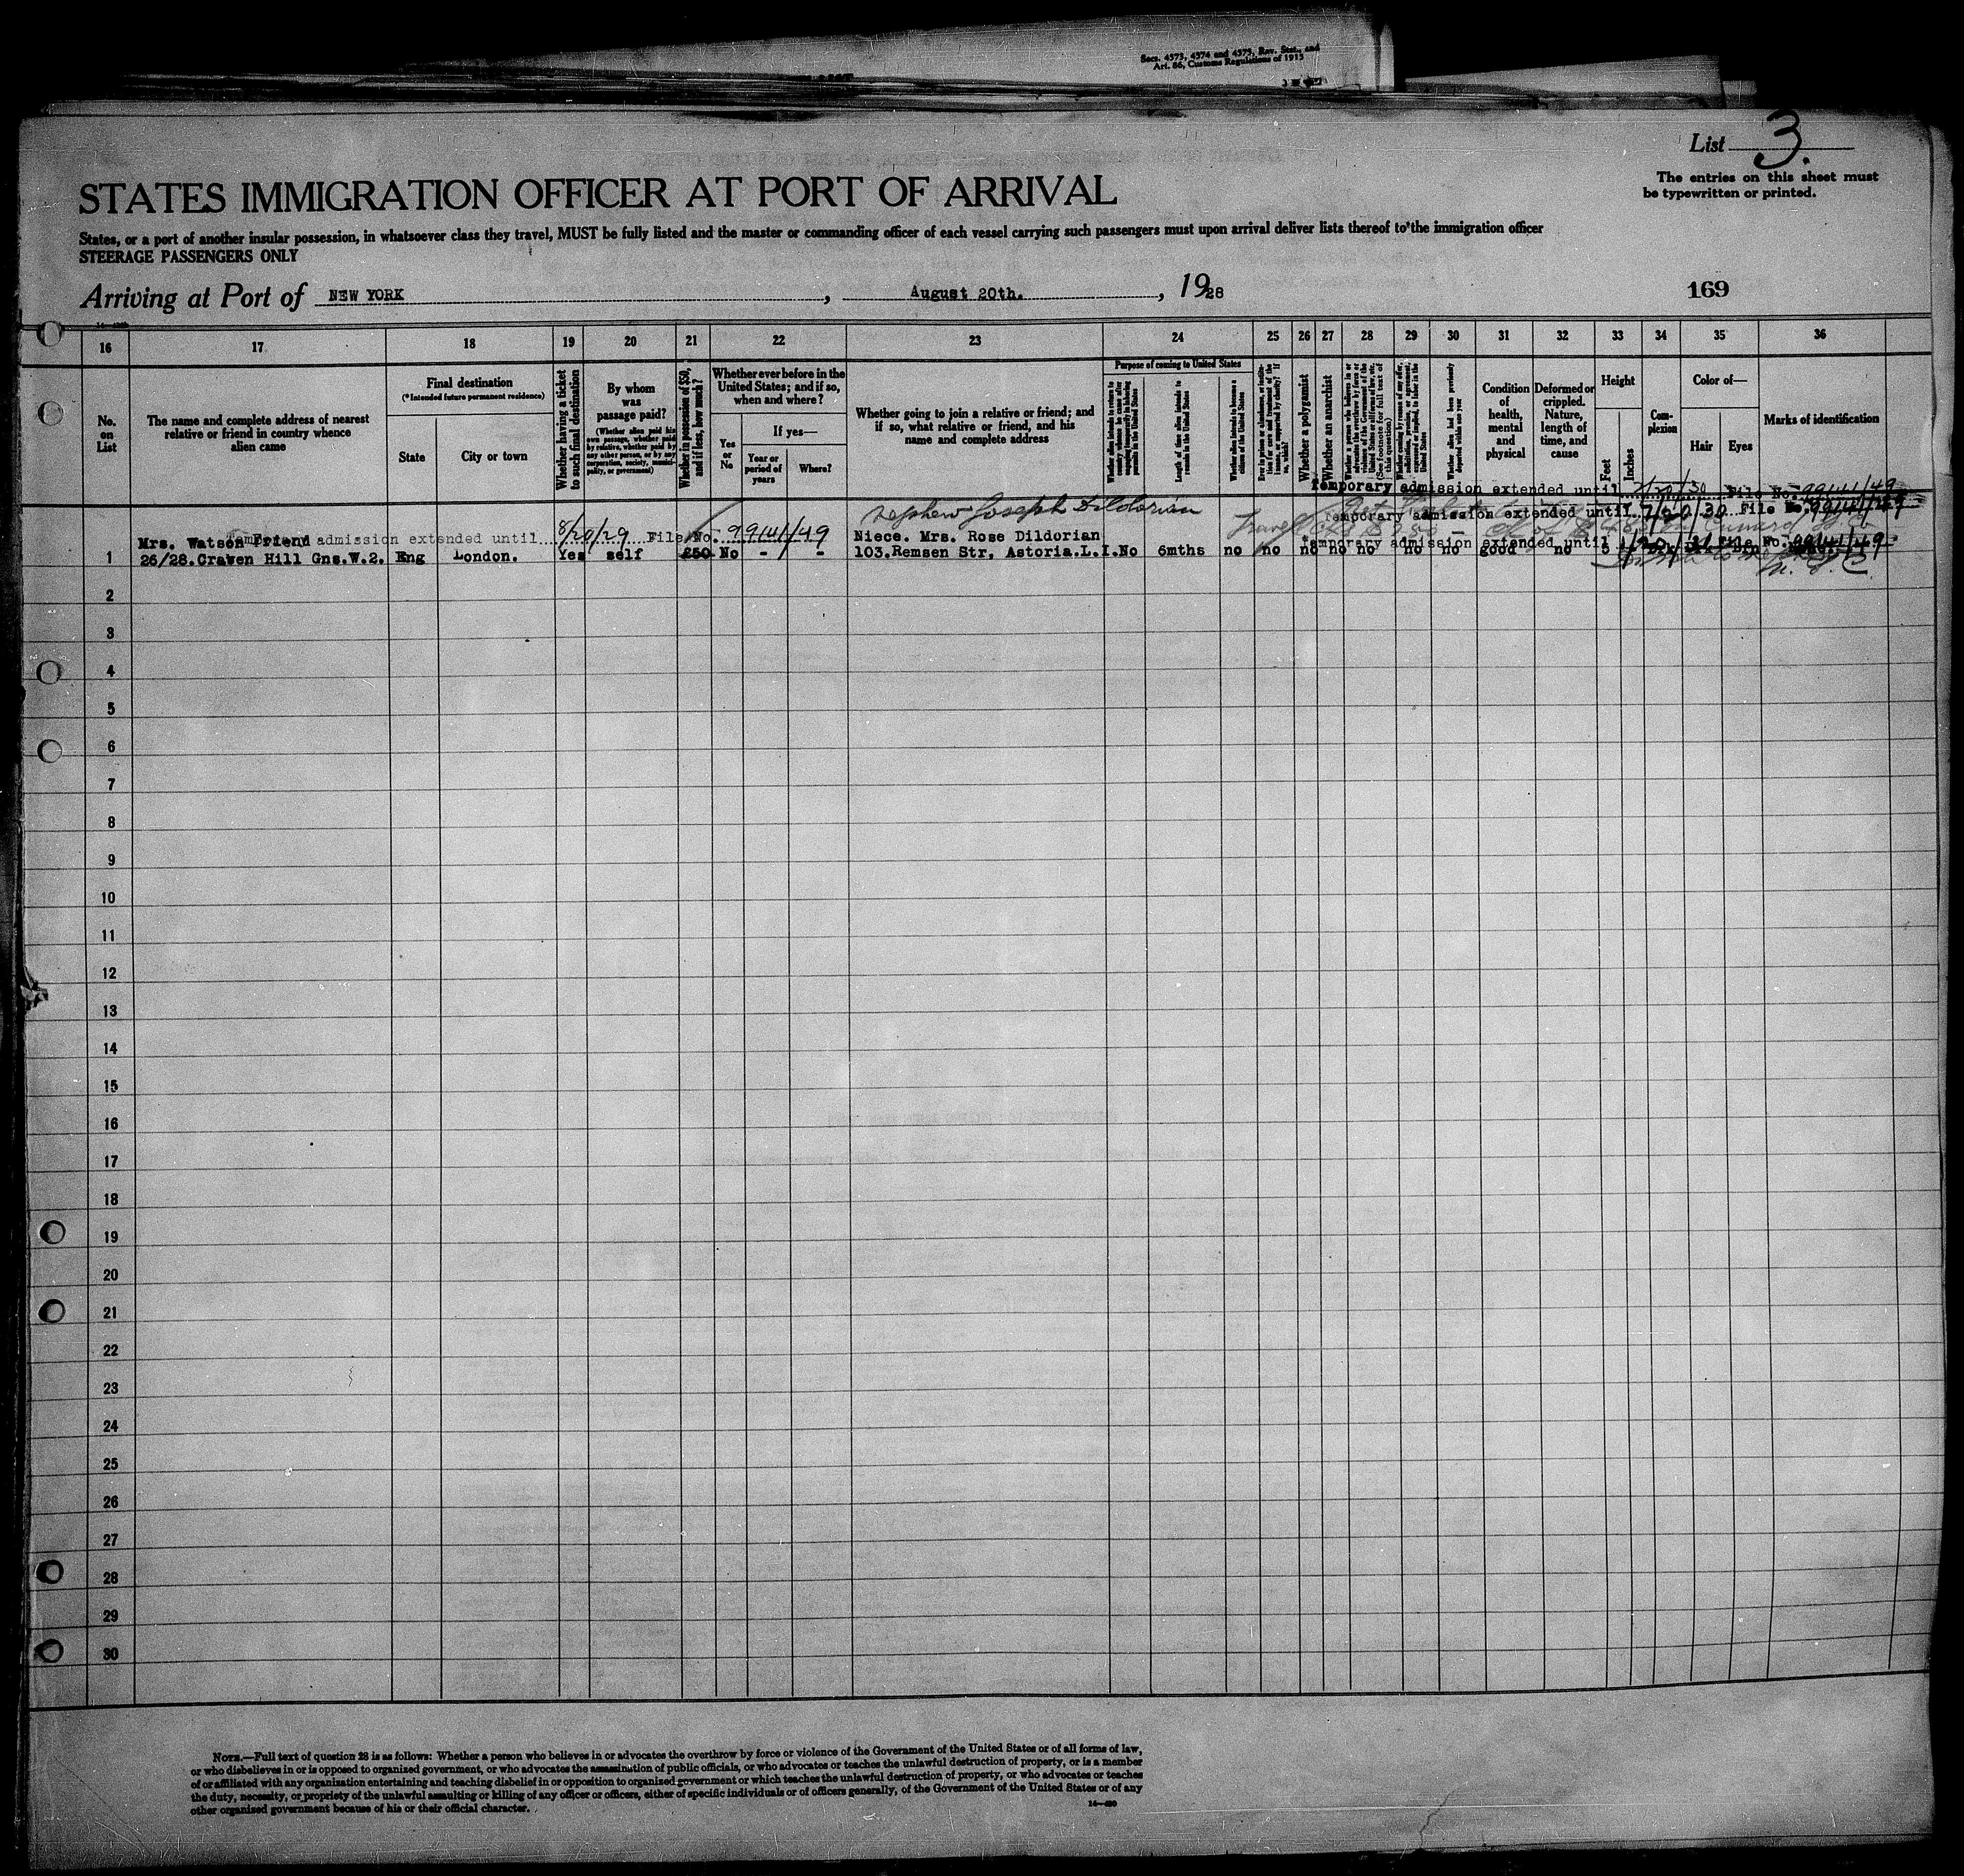 Secs. 4573, 4574 and 4575, Rev. Stat., and
Art. 86, Customs Regulations of 1915
List 3.
The entries on this sheet must
be typewritten or printed.
STATES IMMIGRATION OFFICER AT PORT OF ARRIVAL
States, or a port of another insular possession, in whatsoever class they travel, MUST be fully listed and the master or commanding officer of each vessel carrying such passengers must upon arrival deliver lists thereof to the immigration officer
STEERAGE PASSENGERS ONLY
Arriving at Port of NEW YORK, August 20th., 1928
169
16 17 18 19 20 21 22 23 24 25 26 27 28 29 30 31 32 33 34 35 36
No.
on
List
The name and complete address of nearest
relative or friend in country whence
alien came
Final destination
(*Intended future permanent residence)
State
City or town
Whether having a ticket
to such final destination
By whom
was
passage paid?
(Whether alien paid his
own passage, whether paid
by relative, whether paid by
any other person, or by any
corporation, society, munici-
pality, or government)
Whether in possession of $50,
and if less, how much?
Whether ever before in the
United States; and if so,
when and where?
Yes
or
No
If yes—
Year or
period of
years
Where?
Whether going to join a relative or friend; and
if so, what relative or friend, and his
name and complete address
Purpose of coming to United States
Length of time alien intends to
remain in the United States
Whether alien intends to become a
citizen of the United States
Whether a polygamist
Whether an anarchist
(See footnote for full text of
this question)
Whether alien had been previously
deported within one year
Condition
of
health,
mental
and
physical
Deformed or
crippled.
Nature,
length of
time, and
cause
Height
Feet
Inches
Com-
plexion
Color of—
Hair
Eyes
Marks of identification
Temporary admission extended until 1/20/30 File No. 99141/49
Nephew Joseph Dildorian
Temporary admission extended until 7/20/30 File No. 99141/49
Temporary admission extended until 8/20/29 File No. 99141/49
Mrs. Watson Friend
Niece. Mrs. Rose Dildorian
Temporary admission extended until 1/20/31 File No. 99141/49
1 26/28.Craven Hill Gns.W.2. Eng London. Yes self £50 No - - 103.Remsen Str, Astoria.L.I. No 6mths no no no no no no no good no 5
2
3
4
5
6
7
8
9
10
11
12
13
14
15
16
17
18
19
20
21
22
23
24
25
26
27
28
29
30
NOTE.—Full text of question 28 is as follows: Whether a person who believes in or advocates the overthrow by force or violence of the Government of the United States or of all forms of law,
or who disbelieves in or is opposed to organized government, or who advocates the assassination of public officials, or who advocates or teaches the unlawful destruction of property, or is a member
of or affiliated with any organization entertaining and teaching disbelief in or opposition to organized government or which teaches the unlawful destruction of property, or who advocates or teaches
the duty, necessity, or propriety of the unlawful assaulting or killing of any officer or officers, either of specific individuals or of officers generally, of the Government of the United States or of any
other organized government because of his or their official character.